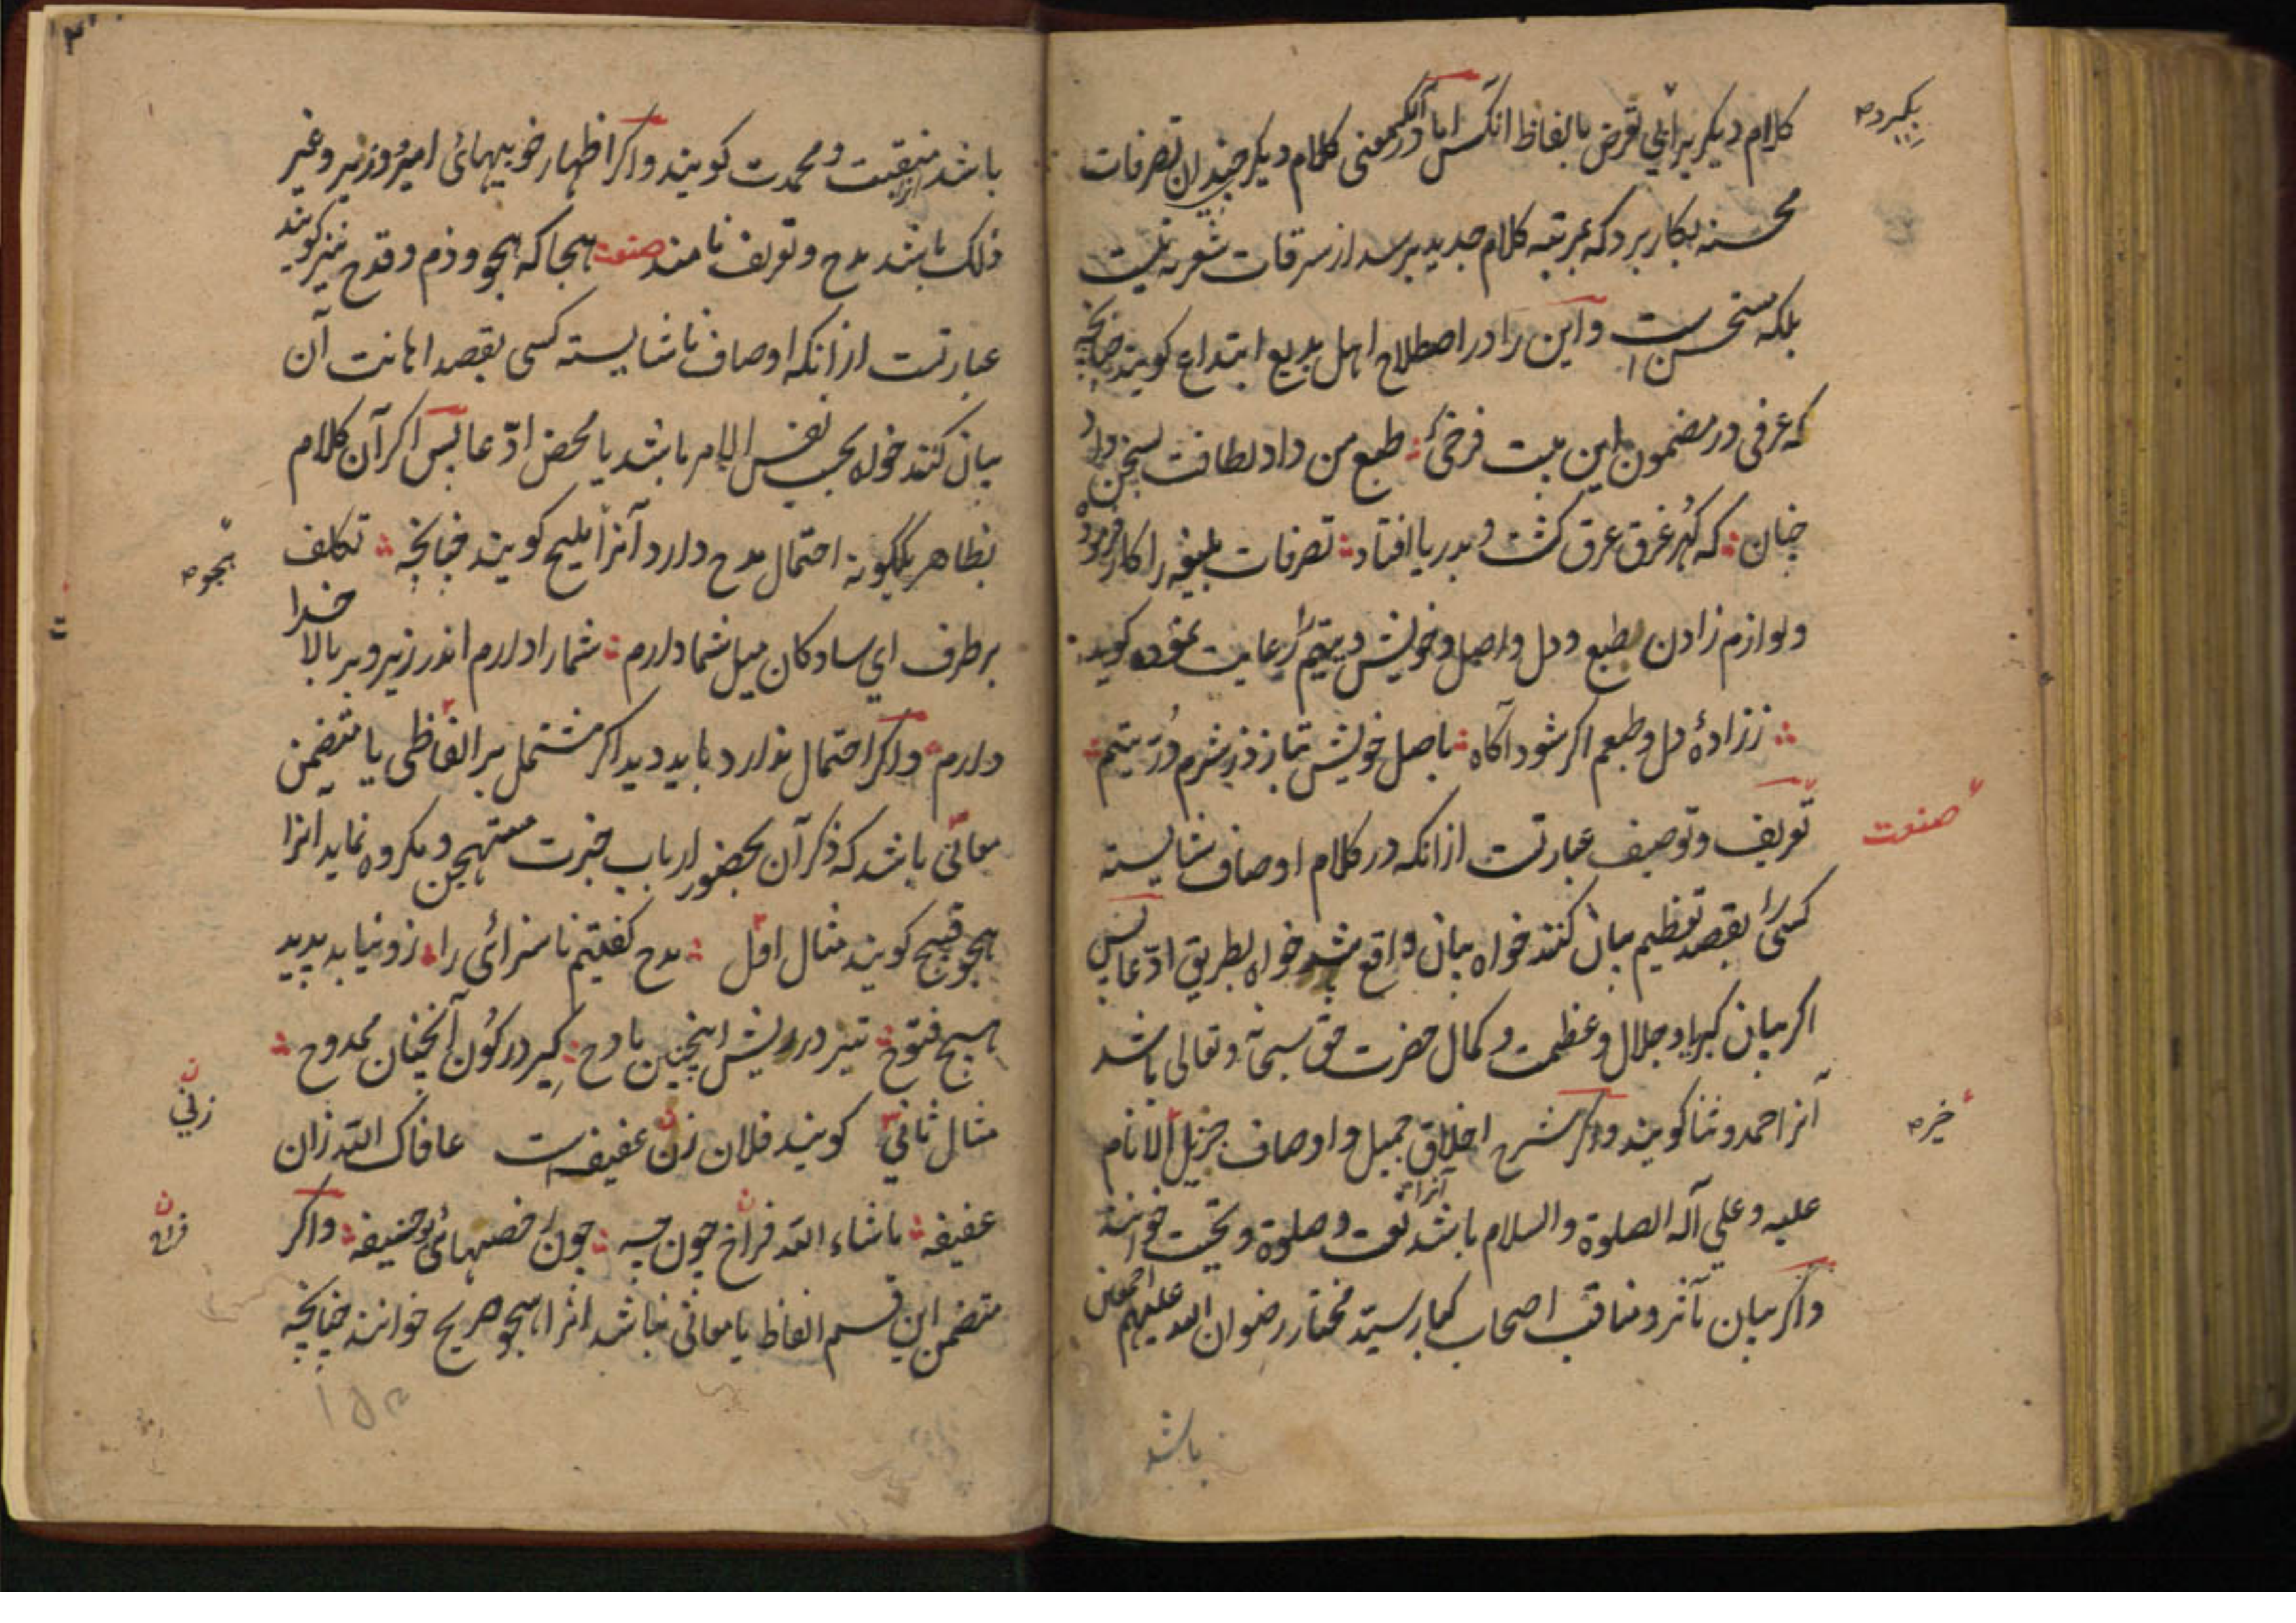 کلام دیکر برانی تعرض بالفاظ انکس اما اکر در معنی کلام دیکر چندان تصرفات
بکیرد
محسنه بکار برد که بمرتبه کلام جدید برسد از سرقات شعریه نیست
بلکه مستحسن است و این را در اصطلاح اهل بدیع ابتداع کویند چنانچه
که عرفی در مضمون این بیت فرخی طبع من داد لطافت بسخن داد
چنان که کهر غرق عرق کشت و بدریا افتاد تصرفات بلیغه را کار فرموده
و لوازم زادن طبع و دل و اصل و خویش و یتیم را رعایت نموده کوید
ززادهٔ دل و طبعم اکر شود آکاه باصل خویش نیازد ز شرم دُرّ یتیم
صنعت
تعریف و توصیف عبارتست ازانکه در کلام اوصاف شایسته
کسی را بقصد تعظیم بیان کنند خواه بیان واقع باشد خواه بطریق ادّعا پس
اکر بیان کبریا و جلال و عظمت و کمال حضرت حق سبحانه و تعالی باشد
آنرا حمد و ثنا کویند و اکر شرح اخلاق جمیل و اوصاف جزیل الانام
خیر
علیه و علی آله الصلوة والسلام باشد آنرا نعت و صلوة و تحیت خوانند
و اکر بیان مآثر و مناقب اصحاب کبار سیّد مختار رضوان الله علیهم اجمعین
باشد
باشد آنرا منقبت و محمدت کویند و اکر اظهار خوبیهائی امیر و وزیر و غیر
ذلک باشد مدح و تعریف نامند صنعت هجا که هجو و ذم و قدح نیز کویند
عبارتست ازانکه اوصاف ناشایسته کسی بقصد اهانت آن
بیان کنند خواه بحسب نفس الامر باشد یا محض ادّعا پس اکر آن کلام
بظاهر یکگونه احتمال مدح دارد آنرا ملیح کویند چنانچه تکلف
هجو
برطرف ای سادکان میل شما دارم شما را دارم اندر زیر و بر بالا خدا
دارم و اکر احتمال ندارد باید دید اکر مشتمل بر الفاظی یا متضمن
معانی باشد که ذکر آن بحضور ارباب خبرت مستهجن و مکروه نماید انرا
هجو قبیح کویند مثال اول مدح کفتیم ناسزائی را زو نیابد پدید
هیچ فتوح تیز در ریش اینچنین مادح کیر در کون آنچنان ممدوح
مثال ثانی کویند فلان زن عفیفه است عافاک الله زان
زنی
عفیفه ماشاء الله فراخ چون جبه چون خصیهائی بوحنیفه و اکر
متضمن این قسم الفاظ یا معانی نباشد انرا هجو صریح خوانند چنانچه